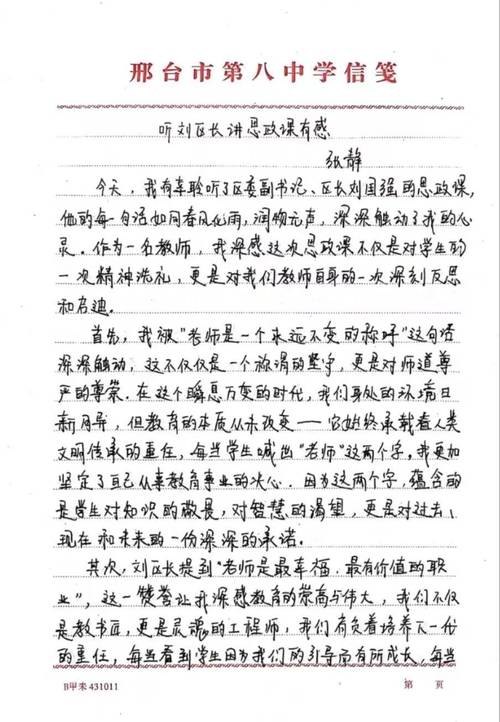 邢台市第八中学信笺
听刘区长讲思政课有感
张静
今天，我有幸聆听了区委副书记、区长刘国强的思政课，
他的每一句话如同春风化雨，润物无声，深深触动了我的心
灵。作为一名教师，我深感这次思政课不仅是对学生的
一次精神洗礼，更是对我们教师自身的一次深刻反思
和启迪．
首先，我被"老师是一个永远不变的称呼"这句话
深深触动，这不仅仅是一个称谓的坚守，更是对师道尊
严的尊崇．在这个瞬息万变的时代，我们身处的环境日
新月异，但教育的本质从未改变——它始终承载着人类
文明传承的重任，每当学生喊出"老师"这两个字，我更加
坚定了自己从事教育事业的决心．因为这两个字，蕴含的
是学生对知识的敬畏，对智慧的渴望，更是对过去、
现在和未来的一份深深的承诺．
其次，刘区长提到"老师是最幸福、最有价值的职
业"，这一赞誉让我深感教育的崇高与伟大，我们不仅
是教书匠，更是灵魂的工程师，我们有负着培养下一代
的重任，每当看到学生因为我们的引导而有所成长，每当
B甲未431011
第 页